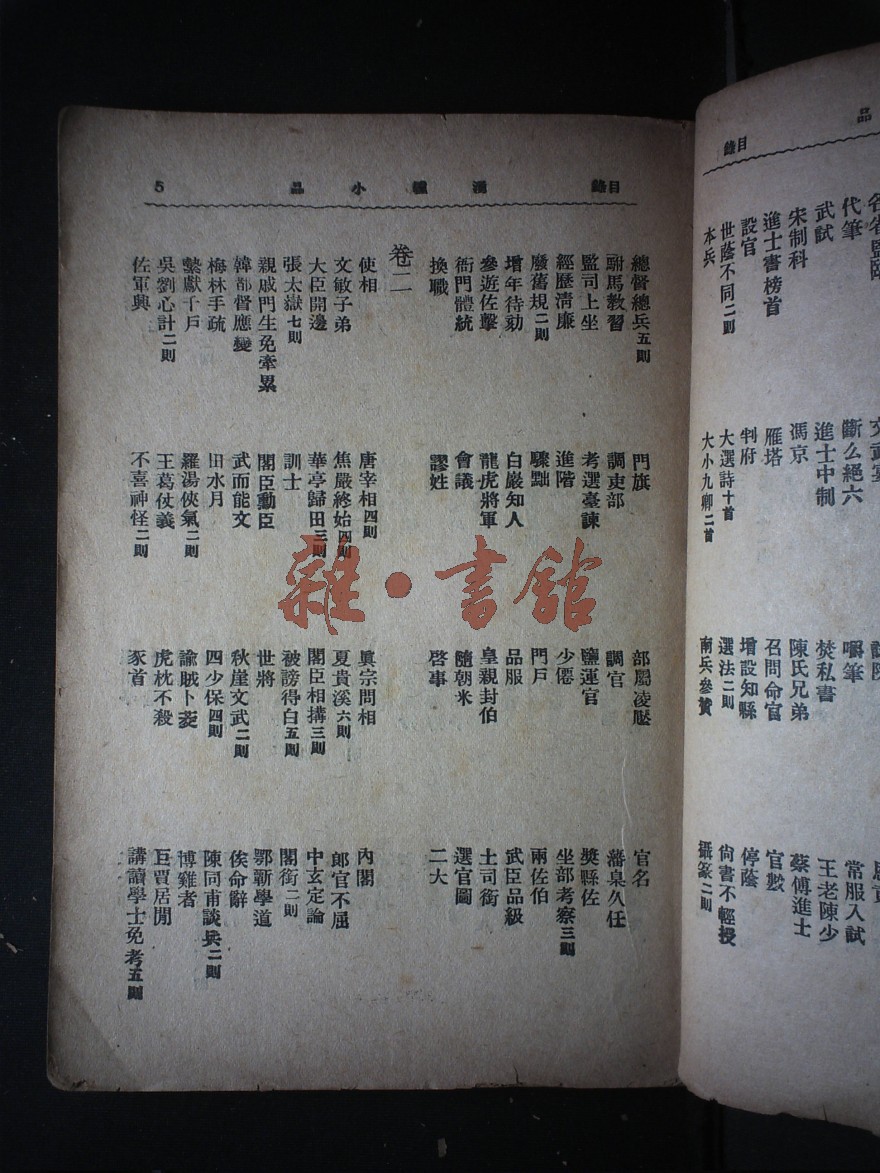 品
目錄
各省監臨 文武宴
代筆 斷么絕六 嚼筆 常服入試
武試 進士中制 焚私書 王老陳少
宋制科 馮京 陳氏兄弟 蔡傅進士
進士書榜首 雁塔 召問命官 官數
設官 判府 增設知縣 停蔭
世蔭不同二則 大選詩十首 選法二則 尙書不輕授
本兵 大小九卿二首 南兵參贊 攝篆二則
目錄 湧幢小品 5
總督總兵五則 門旗 部屬凌壓 官名
駙馬教習 調吏部 調官 藩臬久任
監司上坐 考選臺諫 鹽運官 奬縣佐
經歷淸廉 進階 少僊 坐部考察三則
廢舊規二則 驟黜 門戶 兩佐伯
增年待劾 白巖知人 品服 武臣品級
參遊佐擊 龍虎將軍 皇親封伯 土司銜
衙門體統 會議 隨朝米 選官圖
換職 謬姓 啓事 二大
卷二
使相 唐宰相四則 眞宗問相 內閣
文敏子弟 焦嚴終始四則 夏貴溪六則 郎官不屈
大臣開邊 華亭歸田三則 閣臣相搆三則 中玄定論
張太嶽七則 訓士 被謗得白五則 閣銜二則
親戚門生免牽累 閣臣勳臣 世將 鄂蘄學道
韓都督應變 武而能文 秋崖文武二則 俟命辭
梅林手疏 田水月 四少保四則 陳同甫談兵二則
繫獻千戶 羅湯俠氣二則 諭賊卜葬 博雞者
吳劉心計二則 王葛仗義 虎枕不殺 巨賈居閒
佐軍興 不喜神怪二則 豕首 講讀學士免考五則
雜·書館